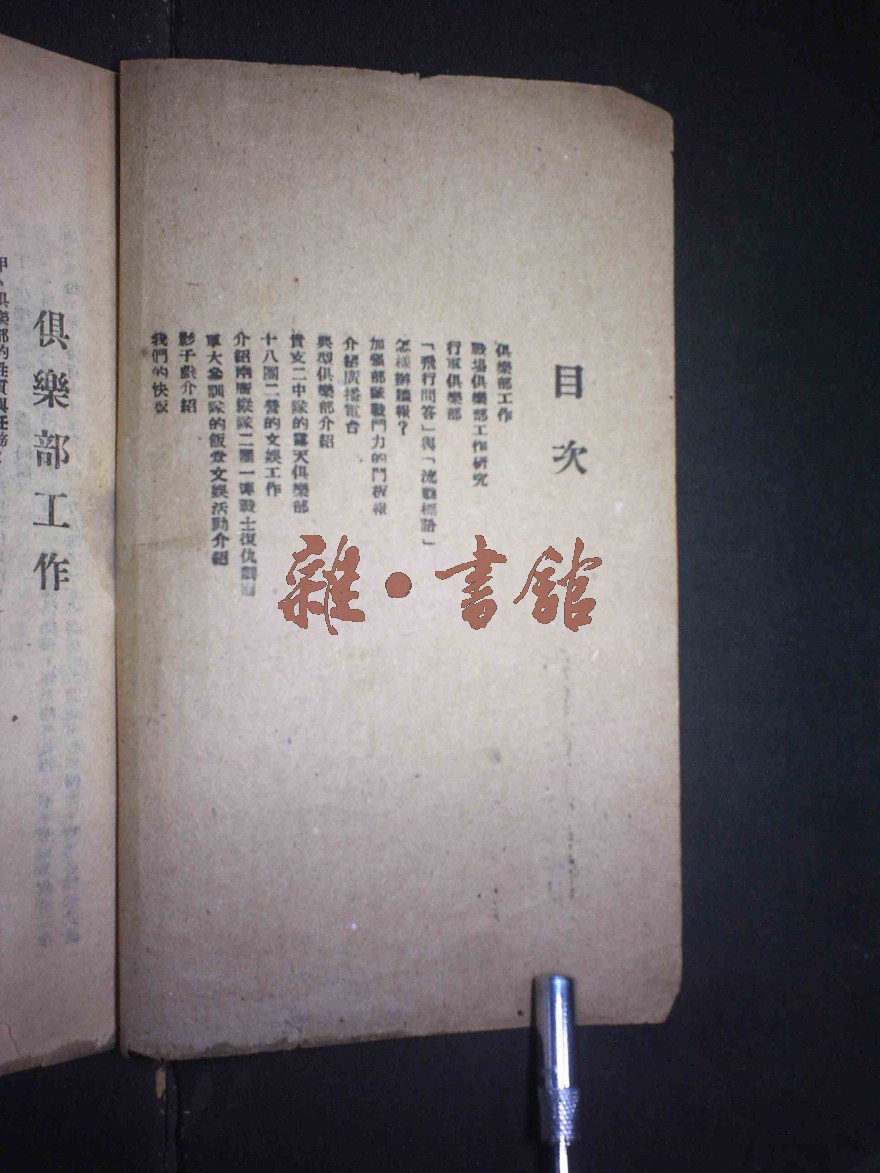 目次
俱樂部工作
戰場俱樂部工作研究
行軍俱樂部
「飛行問答」與「流動標語」
怎樣辦牆報？
加强部隊戰鬥力的門板報
介紹廣播電台
典型俱樂部介紹
貴支二中隊的露天俱樂部
十八團二營的文娛工作
介紹南廣縱隊二團一連戰士復仇劇
軍大參訓隊的飯堂文娛活動介紹
影子戲介紹
我們的快板
雜·書館
俱樂部工作
甲、俱樂部的性質與任務：